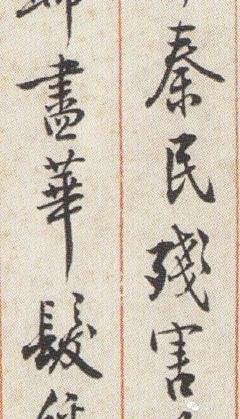 秦民殘害
盡華髮